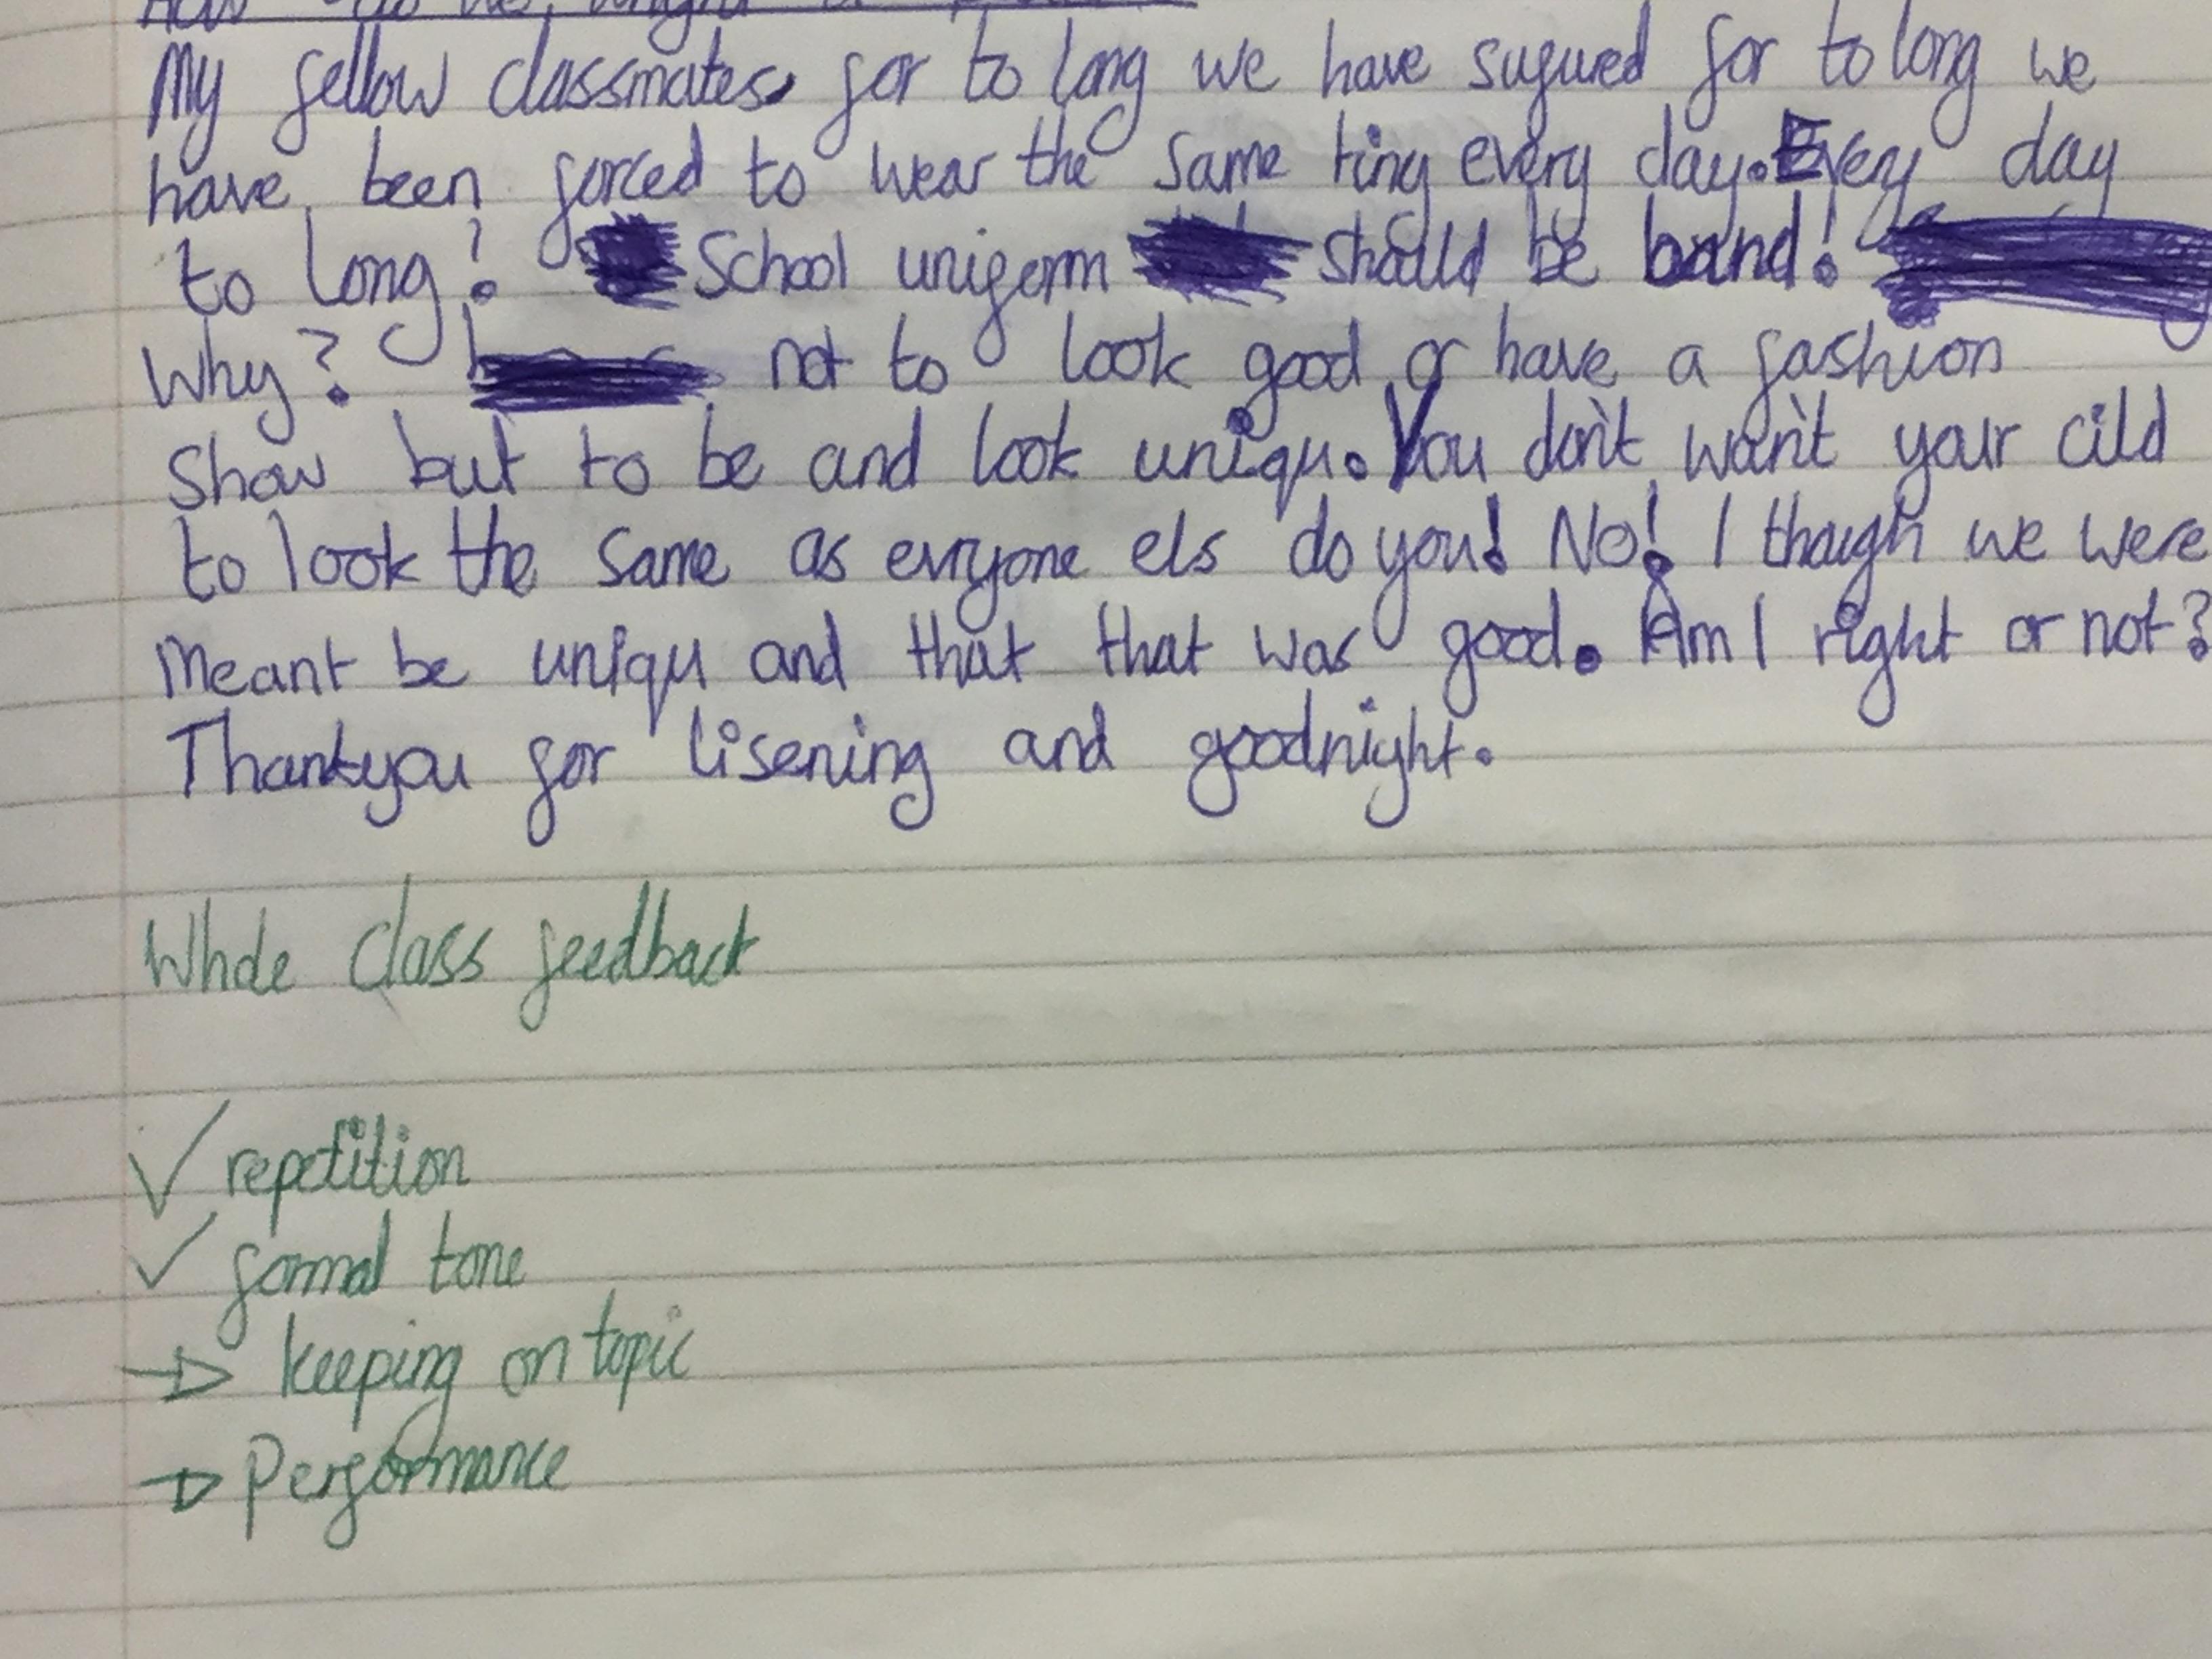 My fellow classmates for to long we have sufured for to long we
have been forced to wear the same ting every day. Every day
to long! School uniform should be band!
Why? not to look good or have a fashion
show but to be and look uniqu. You don't wan't your cild
to look the same as evryone els do you! No! I thaugh we were
meant be uniqu and that that was good. Am I right or not?
Thankyou for lisening and goodnight.
Whole class feedback
✓ repetition
✓ formal tone
→ keeping on topic
→ Performance